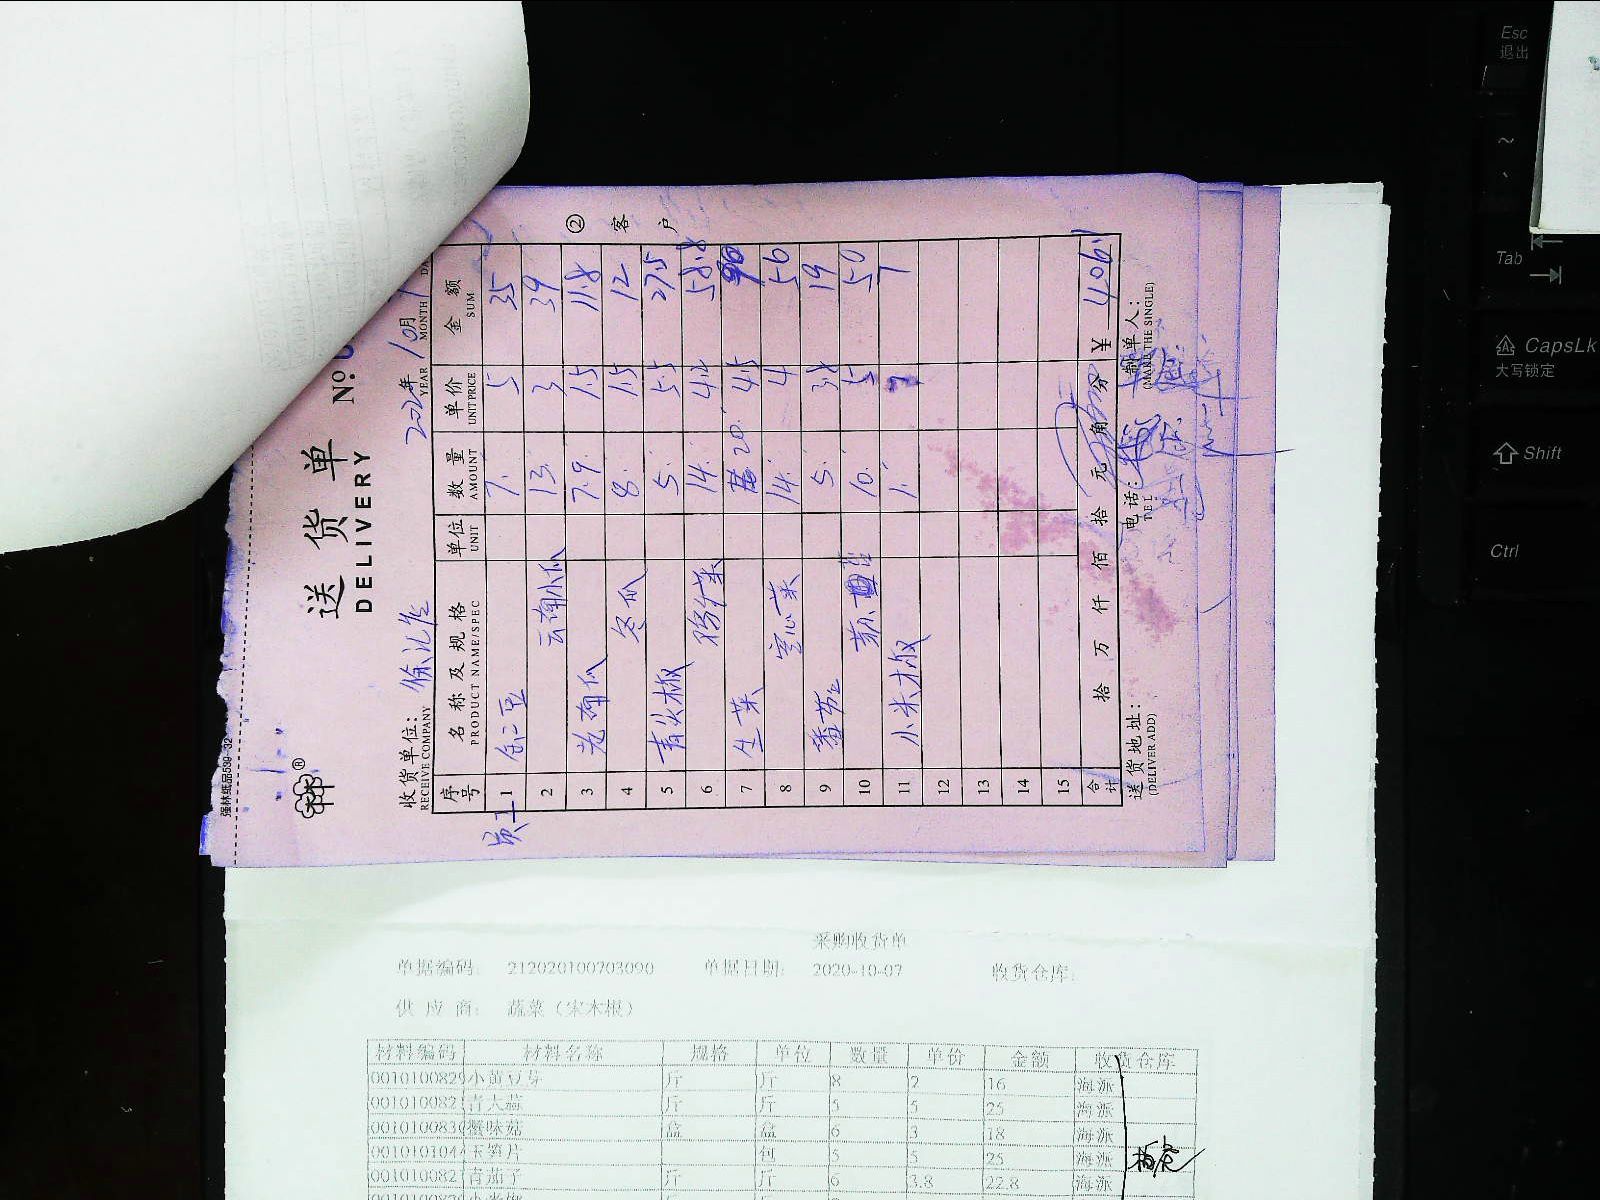 强林纸品539-32
送货单
DELIVERY
No:
收货单位: 徐记 2020年 10月
RECEIVE COMPANY YEAR MONTH
② 客户
序号 名称及规格 单位 数量 单价 金额
PRODUCT NAME/SPEC UNIT AMOUNT UNIT PRICE SUM
员工
1 7. 5 35
2 云南小瓜 13. 3 39
3 老南瓜 7.9. 1.5 11.8
4 冬瓜 8. 1.5 12
5 青尖椒 5. 5.5 27.5
6 14. 4.2 58.8
7 生菜 20. 4.5 90
8 空心菜 14. 4 56
9 番茄 5. 3.8 19
10 10. 5 50
11 小米椒 1. 7 7
12
13
14
15
合计 拾 万 仟 佰 拾 元 角 分 ¥ 406.1
送货地址: 电话: 制单人:
(DELIVER ADD) TEL (MAKE THE SINGLE)
采购收货单
单据编码: 212020100703090 单据日期: 2020-10-07 收货仓库:
供应商: 蔬菜（宋木根）
材料编码 材料名称 规格 单位 数量 单价 金额 收货仓库
0010100829 小黄豆芽 斤 斤 8 2 16 海派
001010082 青大蒜 斤 斤 5 5 25 海派
001010083 蟹味菇 盒 盒 6 3 18 海派
001010104 玉笋片 包 5 5 25 海派
001010082 青茄子 斤 斤 6 3.8 22.8 海派
Esc
退出
~
Tab
CapsLk
大写锁定
Shift
Ctrl